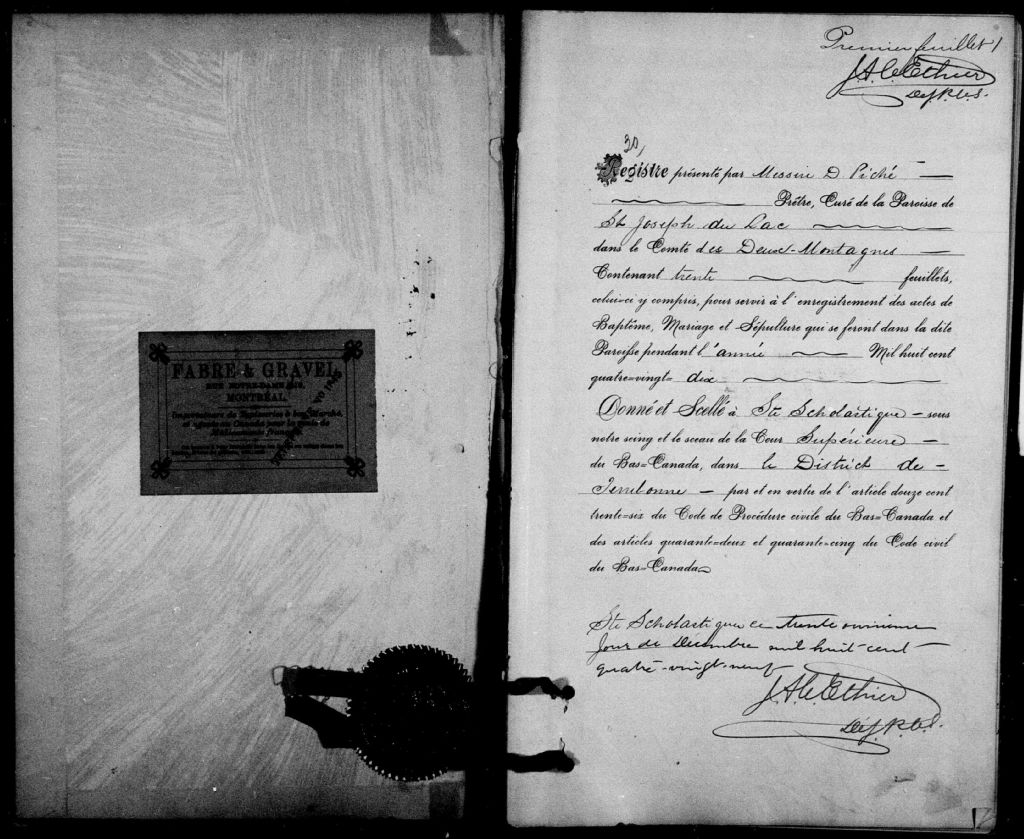 FABRE & GRAVEL
RUE NOTRE-DAME
MONTRÉAL.
Importateurs de Tapisseries à bon Marché,
et agents au Canada pour la
Premier feuillet 1
J.A.C. Ethier
Dép. P.C.S.
30,
Registre présenté par Messire D. Piché —
Prêtre, Curé de la Paroisse de
St Joseph du Lac
dans le Comté des Deux-Montagnes —
Contenant trente feuillets,
celui-ci y compris, pour servir à l'enregistrement des actes de
Baptême, Mariage et Sépulture qui se feront dans la dite
Paroisse pendant l'année Mil huit cent
quatre=vingt=dix
Donné et Scellé à Ste Scholastique — sous
notre seing et le sceau de la Cour Supérieure —
du Bas=Canada, dans le District de —
Terrebonne — par et en vertu de l'article douze cent
trente=six du Code de Procédure civile du Bas=Canada et
des articles quarante=deux et quarante=cinq du Code civil
du Bas=Canada
Ste Scholastique ce trente unième
jour de Décembre mil huit-cent-
quatre-vingt-neuf
J.A.C. Ethier
Dép. P.C.S.